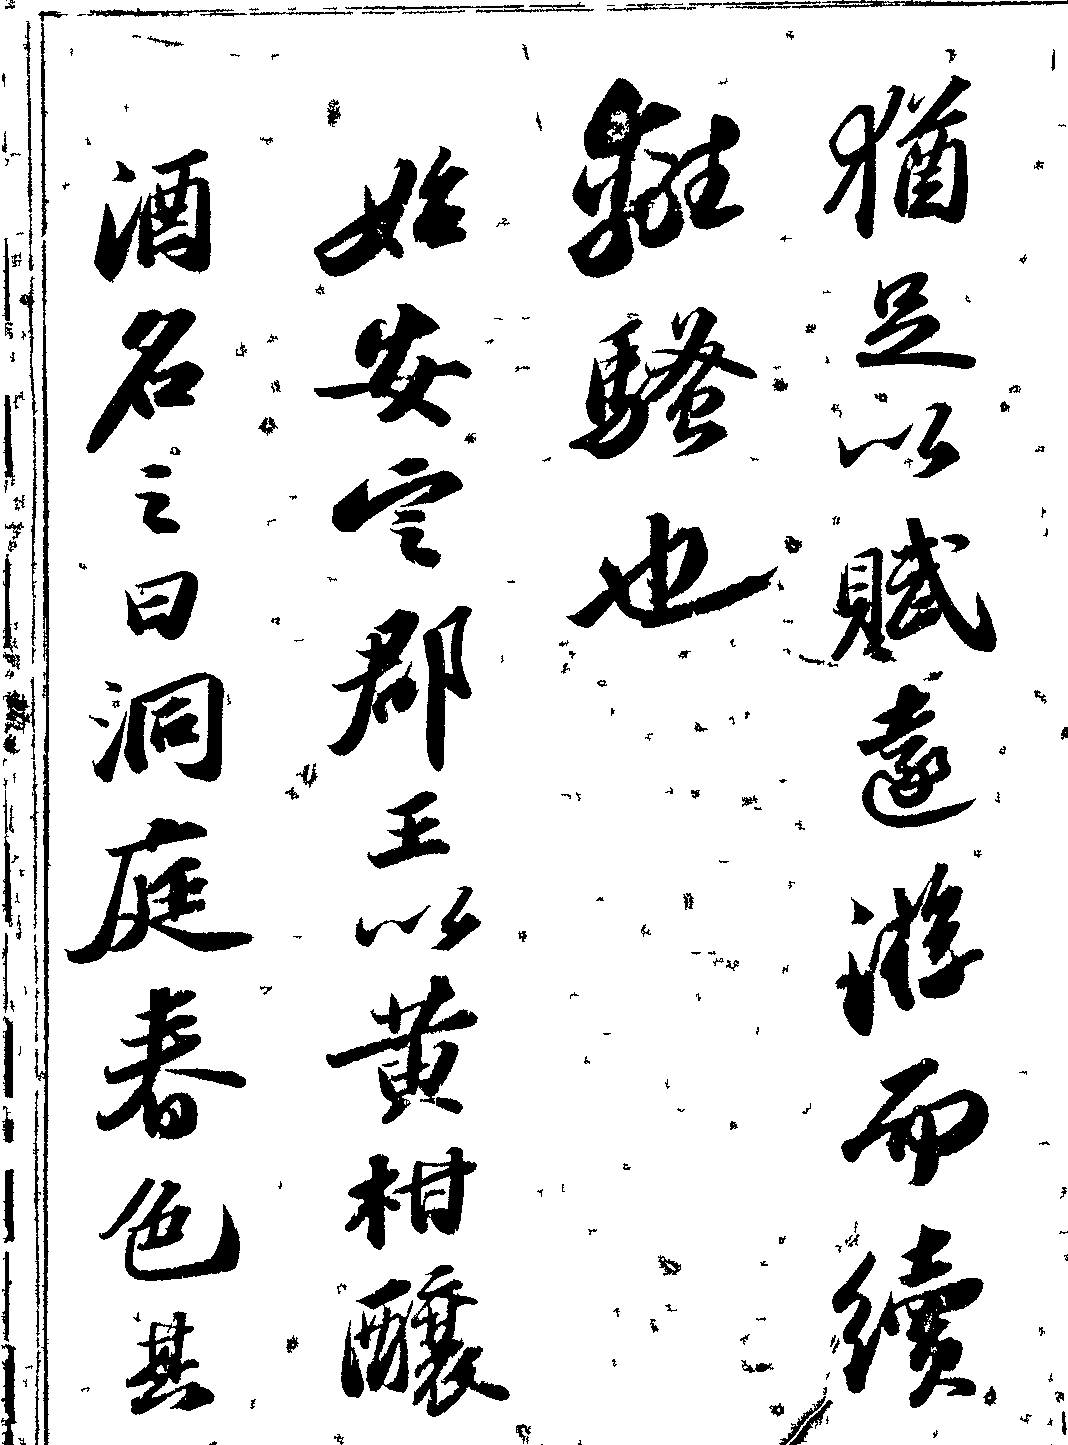 猶足以賦遠游而續
離騷也
始安定郡王以黄柑釀
酒名之曰洞庭春色其